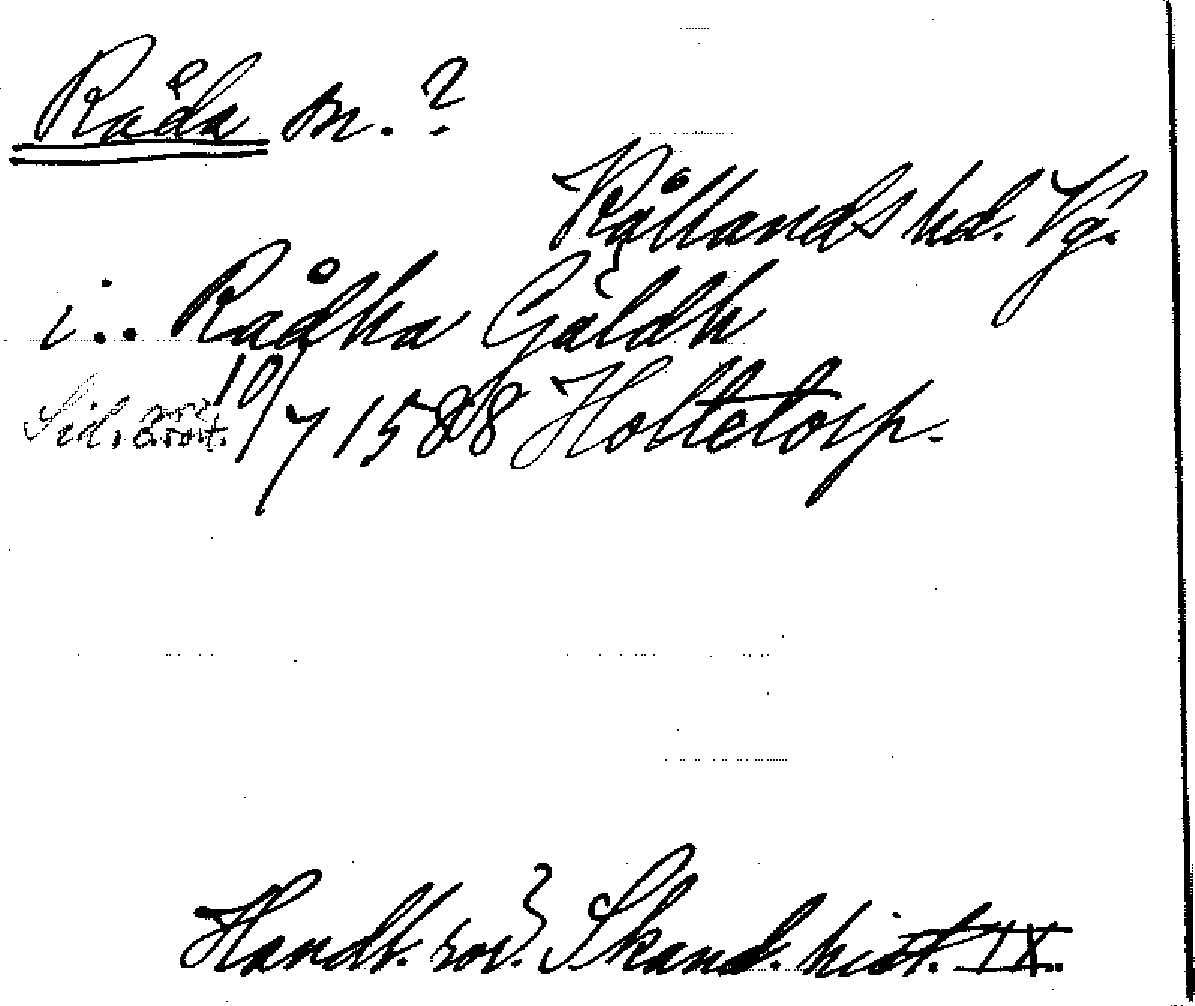 Råda sn. ?
Kållands hd. Vg.
i.. Rådha Gäldh
10/7 1588 Holtetorp.
Handl. rör. Skand. hist. IX.